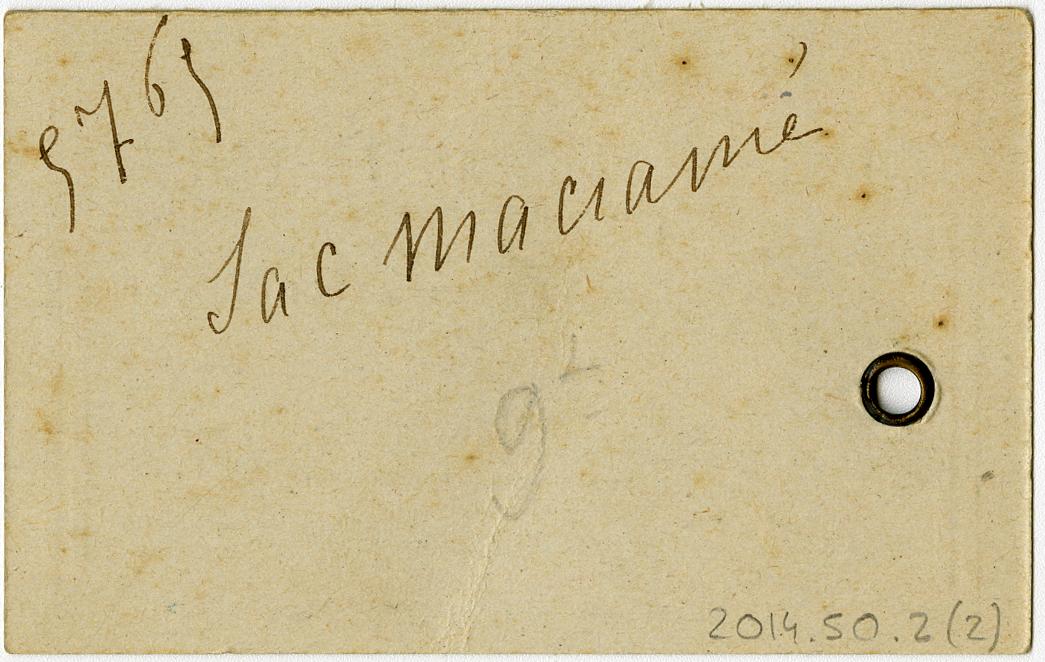 5765
Sac Macramé
9
2014.50.2(2)